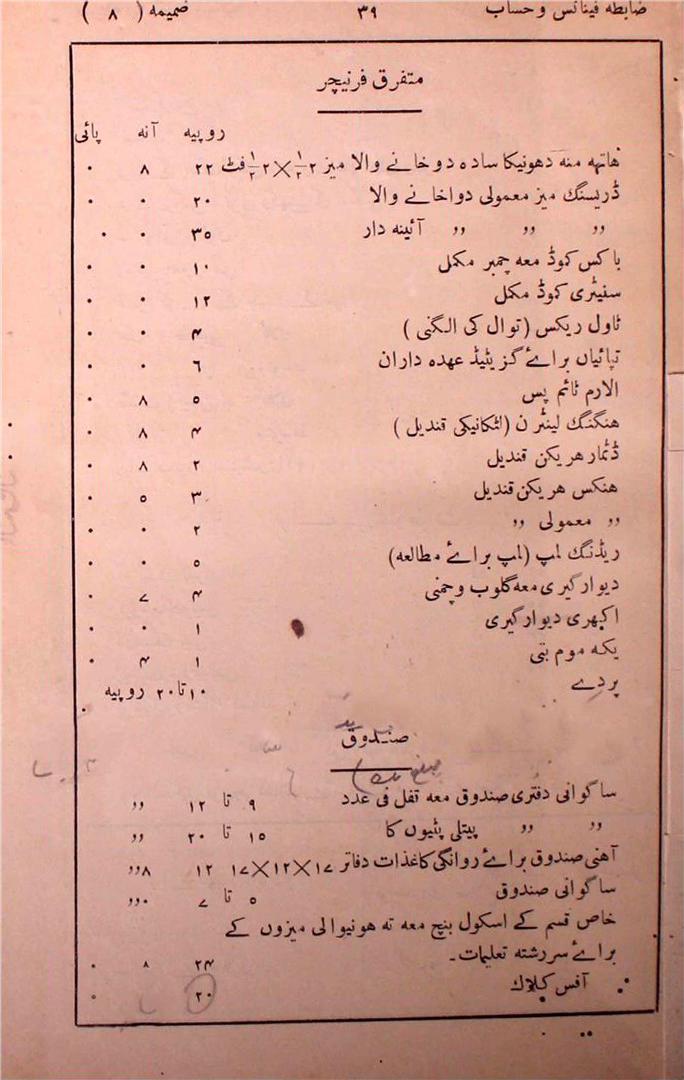 ضابطه فینانس و حساب ۳۹ ضمیمه ( ۸ )
متفرق فرنیچر
روپیه آنه پائی
هاتهه منه دهونیکا ساده دو خانے والا میز ۲½×۲½ فٹ ۲۲ ۸ ۰
ڈریسنگ میز معمولی دواخانے والا ۲۰ ۰ ۰
,, ,, ,, آئینه دار ۳۵ ۰ ۰
باکس کموڈ معه چمبر مکمل ۱۰ ۰ ۰
سنیٹری کموڈ مکمل ۱۲ ۰ ۰
ٹاول ریکس (توال کی الگنی ) ۴ ۰ ۰
تپائیاں براۓ گزیٹیڈ عهده داران ٦ ۰ ۰
الارم ٹائم پس ۵ ۸ ۰
هنگنگ لینٹرن (لٹکانیکی قندیل ) ۴ ۸ ۰
ڈٹمار هریکن قندیل ۲ ۸ ۰
هنکس هریکن قندیل ۳ ۵ ۰
,, معمولی ,, ۲ ۰ ۰
ریڈنگ لمپ (لمپ براۓ مطالعه) ۵ ۰ ۰
دیوارگیری معه گلوب و چمنی ۴ ۷ ۰
اکهری دیوارگیری ۱ ۰ ۰
یکه موم بتی ۱ ۴ ۰
پردے ۱۰ تا ۲۰ روپیه
صندوق
ساگوانی دفتری صندوق معه قفل فی عدد ۹ تا ۱۲ ,,
,, ,, پیتلی پٹیوں کا ۱۵ تا ۲۰ ,,
آهنی صندوق براۓ روانگی کاغذات دفاتر ۱۷×۱۲×۱۷ ۱۲ ۸,,
ساگوانی صندوق ۵ تا ۷ ۰,,
خاص قسم کے اسکول بنچ معه ته هونیوالی میزوں کے
براۓ سررشته تعلیمات۔ ۲۴ ۸ ۰
آفس کلاک ۲۰ ۰